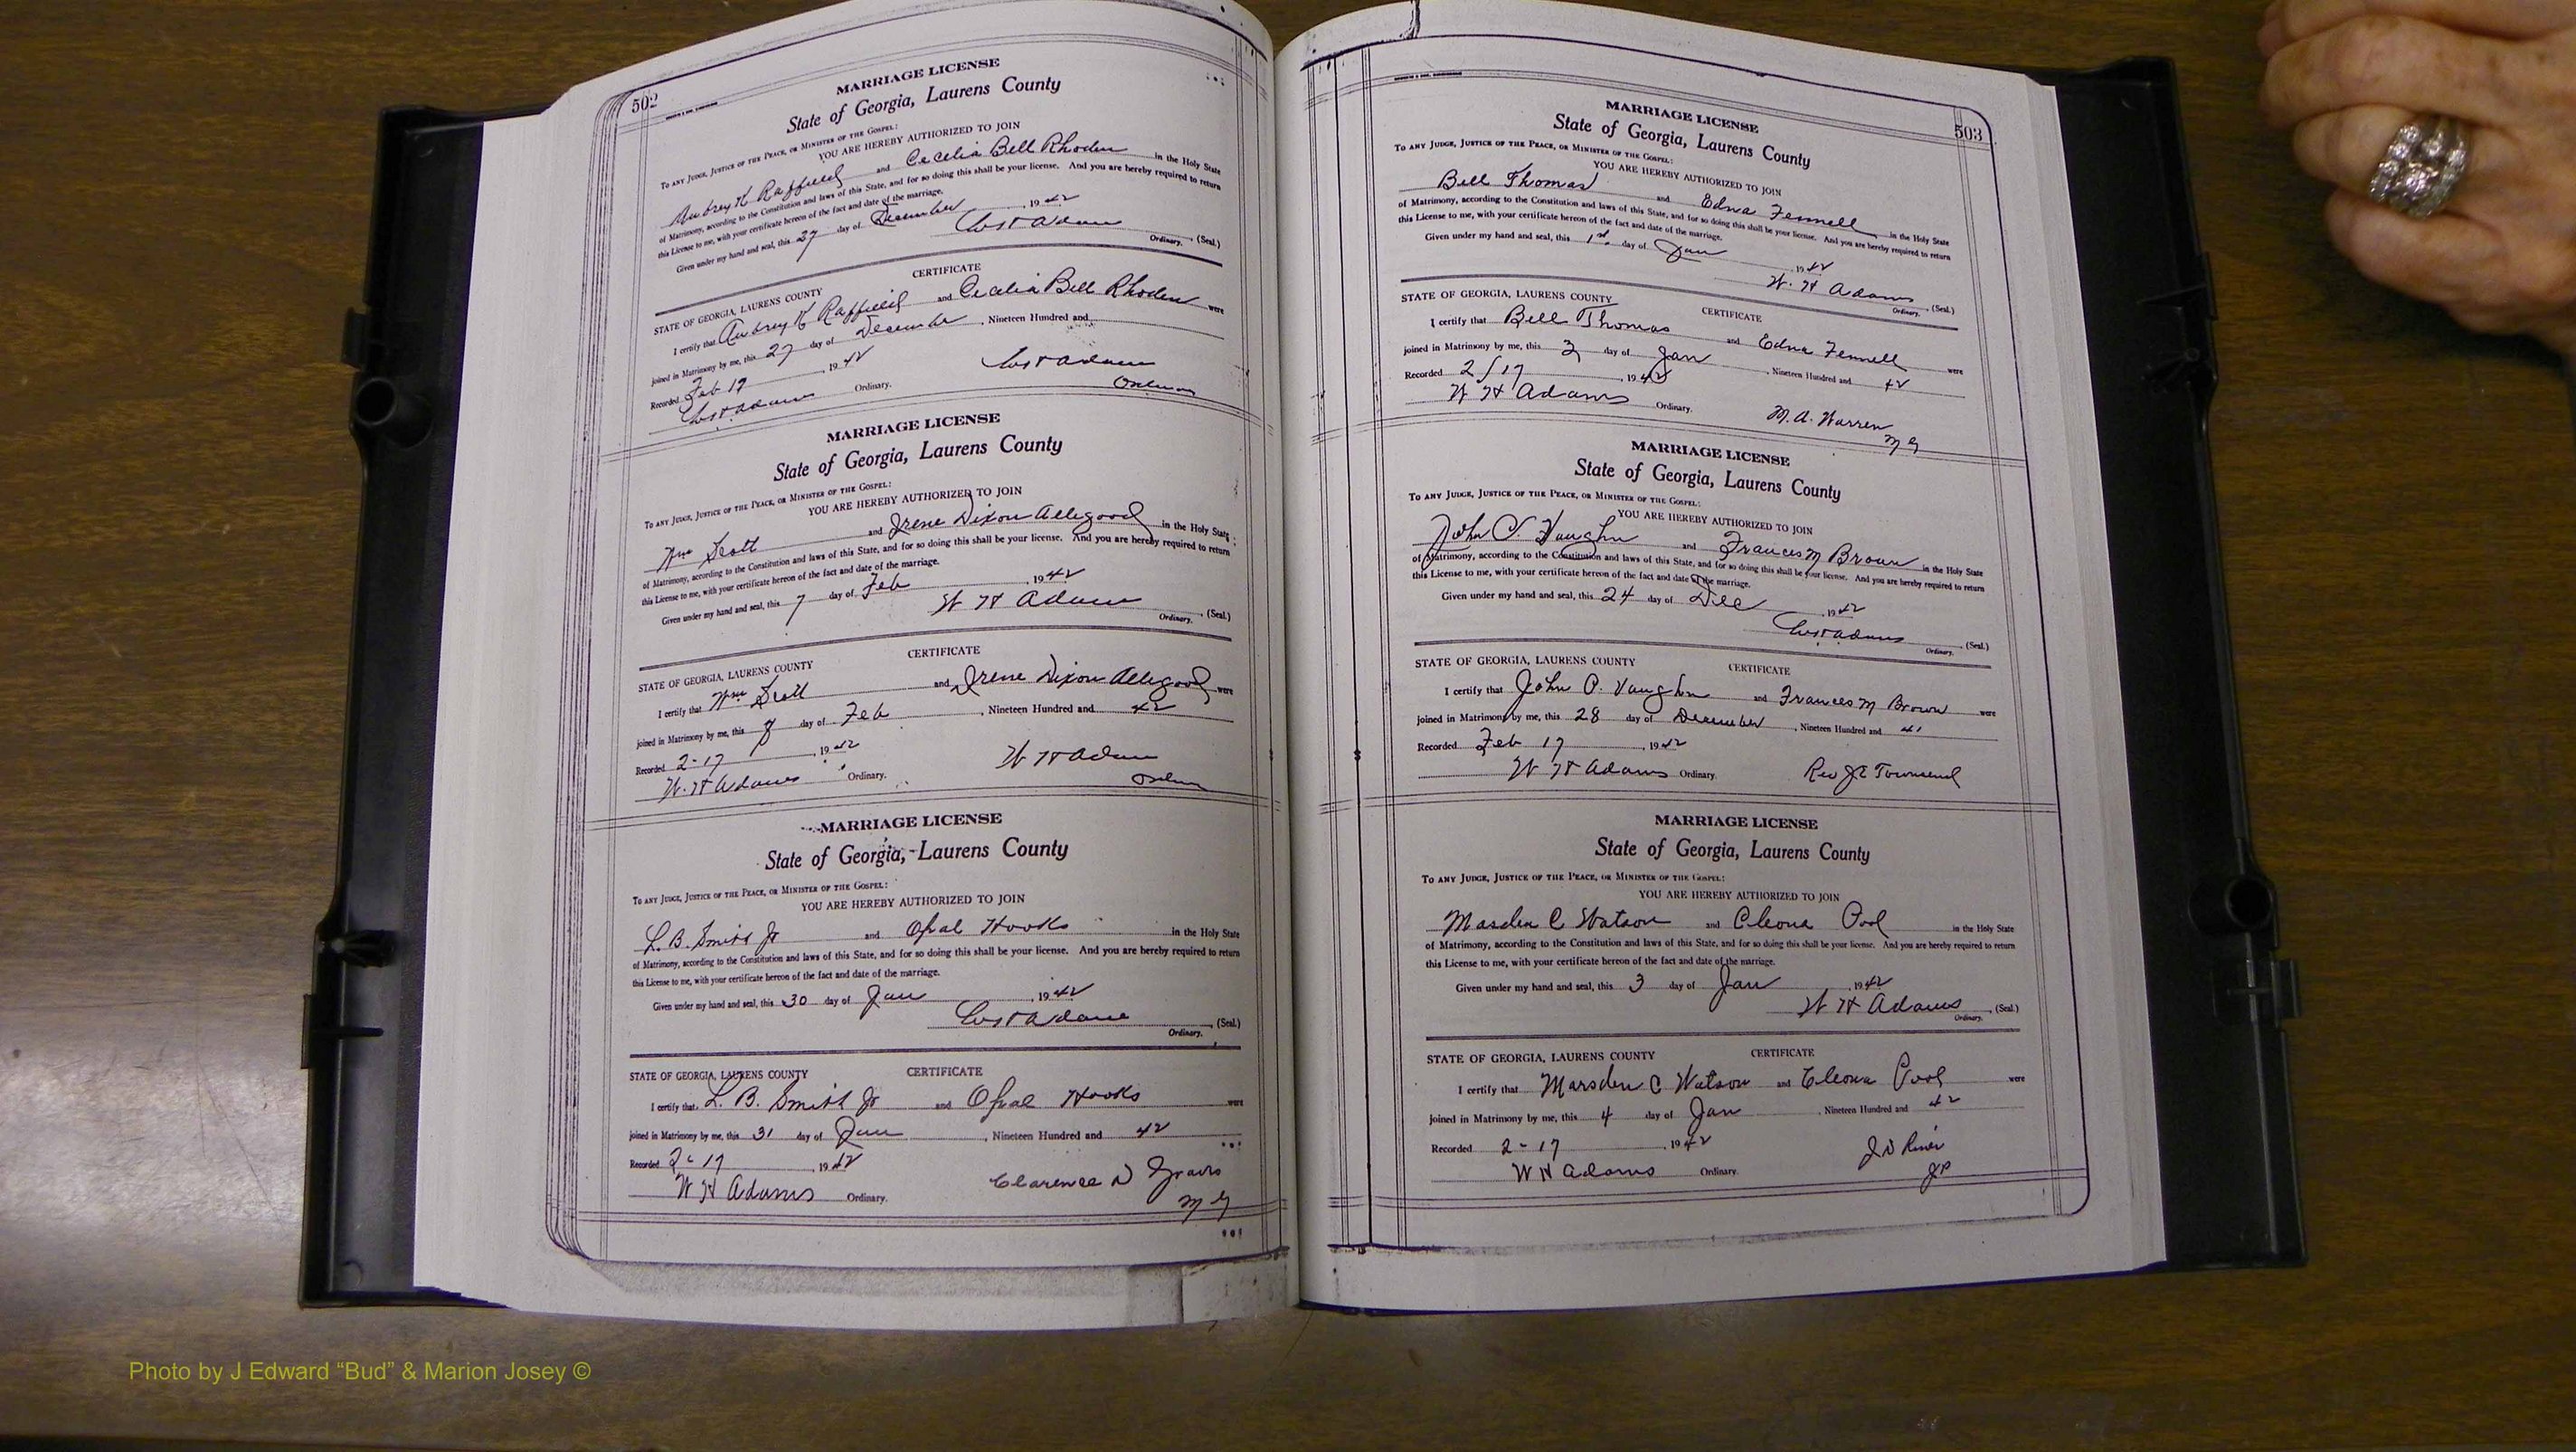 502
MARRIAGE LICENSE
State of Georgia, Laurens County
To any Judge, Justice of the Peace, or Minister of the Gospel:
YOU ARE HEREBY AUTHORIZED TO JOIN
Aubrey K Raffield and Cecelia Bell Rhoden in the Holy State
of Matrimony, according to the Constitution and laws of this State, and for so doing this shall be your license. And you are hereby required to return
this License to me, with your certificate hereon of the fact and date of the marriage.
Given under my hand and seal, this 27 day of December, 1942
W H Adams (Seal.)
Ordinary.
CERTIFICATE
STATE OF GEORGIA, LAURENS COUNTY
I certify that Aubrey K Raffield and Cecelia Bell Rhoden were
joined in Matrimony by me, this 27 day of December, Nineteen Hundred and
Recorded Feb 17, 1942 W H Adams
W H Adams Ordinary. Ordinary
MARRIAGE LICENSE
State of Georgia, Laurens County
To any Judge, Justice of the Peace, or Minister of the Gospel:
YOU ARE HEREBY AUTHORIZED TO JOIN
Wm Scott and Irene Dixon Allegood in the Holy State
of Matrimony, according to the Constitution and laws of this State, and for so doing this shall be your license. And you are hereby required to return
this License to me, with your certificate hereon of the fact and date of the marriage.
Given under my hand and seal, this 7 day of Feb, 1942
W H Adams (Seal.)
Ordinary.
CERTIFICATE
STATE OF GEORGIA, LAURENS COUNTY
I certify that Wm Scott and Irene Dixon Allegood were
joined in Matrimony by me, this day of Feb, Nineteen Hundred and 42
Recorded 2-17, 1942 W H Adams
W. H Adams Ordinary.
MARRIAGE LICENSE
State of Georgia, Laurens County
To any Judge, Justice of the Peace, or Minister of the Gospel:
YOU ARE HEREBY AUTHORIZED TO JOIN
L. B. Smith Jr and Opal Hooks in the Holy State
of Matrimony, according to the Constitution and laws of this State, and for so doing this shall be your license. And you are hereby required to return
this License to me, with your certificate hereon of the fact and date of the marriage.
Given under my hand and seal, this 30 day of Jan, 1942
W H Adams (Seal.)
Ordinary.
CERTIFICATE
STATE OF GEORGIA, LAURENS COUNTY
I certify that L. B. Smith Jr and Opal Hooks were
joined in Matrimony by me, this 31 day of Jan, Nineteen Hundred and 42
Recorded 2-17, 1942
W H Adams Ordinary. Clarence D
M G
503
MARRIAGE LICENSE
State of Georgia, Laurens County
To any Judge, Justice of the Peace, or Minister of the Gospel:
YOU ARE HEREBY AUTHORIZED TO JOIN
Bell Thomas and Edna Fennell in the Holy State
of Matrimony, according to the Constitution and laws of this State, and for so doing this shall be your license. And you are hereby required to return
this License to me, with your certificate hereon of the fact and date of the marriage.
Given under my hand and seal, this 1st day of Jan, 1942
W. H Adams (Seal.)
Ordinary.
CERTIFICATE
STATE OF GEORGIA, LAURENS COUNTY
I certify that Bell Thomas and Edna Fennell were
joined in Matrimony by me, this 3 day of Jan, Nineteen Hundred and 42
Recorded 2/17, 1942
W H Adams Ordinary. M. A. Warren
M G
MARRIAGE LICENSE
State of Georgia, Laurens County
To any Judge, Justice of the Peace, or Minister of the Gospel:
YOU ARE HEREBY AUTHORIZED TO JOIN
John Vaughn and Frances M Brown in the Holy State
of Matrimony, according to the Constitution and laws of this State, and for so doing this shall be your license. And you are hereby required to return
this License to me, with your certificate hereon of the fact and date of the marriage.
Given under my hand and seal, this 24 day of Dec, 1942
W H Adams (Seal.)
Ordinary.
STATE OF GEORGIA, LAURENS COUNTY CERTIFICATE
I certify that John Vaughn and Frances M Brown were
joined in Matrimony by me, this 28 day of December, Nineteen Hundred and 41
Recorded Feb 17, 1942
W H Adams Ordinary. Rev J E Townsend
MARRIAGE LICENSE
State of Georgia, Laurens County
To any Judge, Justice of the Peace, or Minister of the Gospel:
YOU ARE HEREBY AUTHORIZED TO JOIN
Marsden C Watson and Cleona Pool in the Holy State
of Matrimony, according to the Constitution and laws of this State, and for so doing this shall be your license. And you are hereby required to return
this License to me, with your certificate hereon of the fact and date of the marriage.
Given under my hand and seal, this 3 day of Jan, 1942
W H Adams (Seal.)
Ordinary.
STATE OF GEORGIA, LAURENS COUNTY CERTIFICATE
I certify that Marsden C Watson and Cleona Pool were
joined in Matrimony by me, this 4 day of Jan, Nineteen Hundred and 42
Recorded 2-17, 1942
W H Adams Ordinary. JP
Photo by J Edward “Bud” & Marion Josey ©